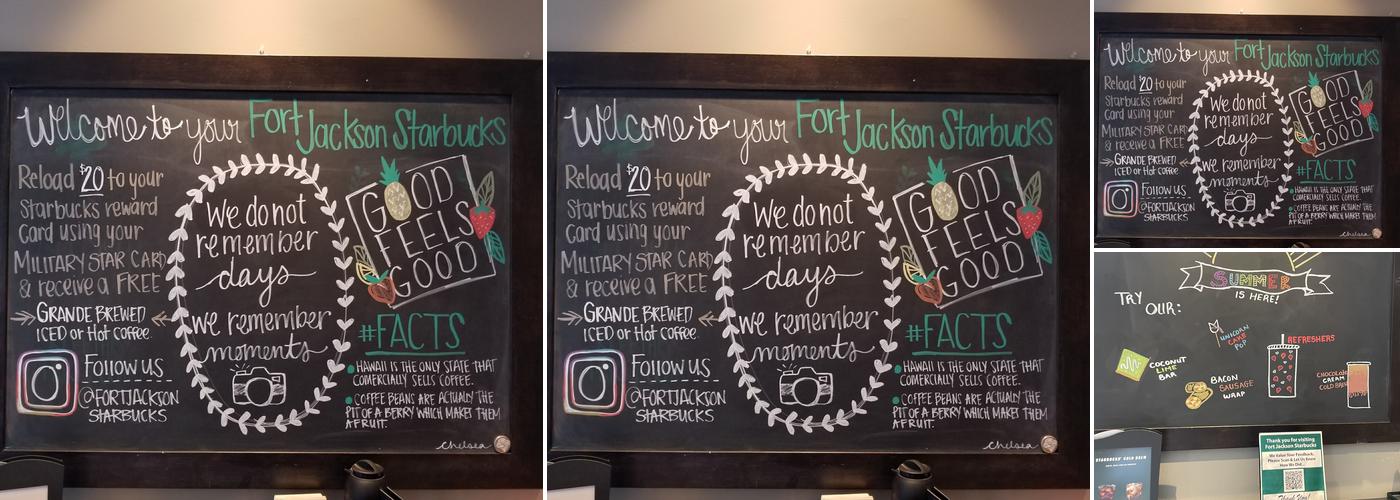 Welcome to your Fort Jackson Starbucks
Reload $20 to your
Starbucks reward
Card using your
MILITARY STAR CARD
& receive a FREE
GRANDE BREWED
ICED or Hot coffee.
Follow us
@FORTJACKSON
STARBUCKS
We do not
remember
days
we remember
moments
GOOD
FEELS
GOOD
#FACTS
HAWAII IS THE ONLY STATE THAT
COMERCIALLY SELLS COFFEE.
COFFEE BEANS ARE ACTUALLY THE
PIT OF A BERRY WHICH MAKES THEM
A FRUIT.
Chelsea
Welcome to your Fort Jackson Starbucks
Reload $20 to your
Starbucks reward
Card using your
MILITARY STAR CARD
& receive a FREE
GRANDE BREWED
ICED or Hot coffee.
Follow us
@FORTJACKSON
STARBUCKS
We do not
remember
days
we remember
moments
GOOD
FEELS
GOOD
#FACTS
HAWAII IS THE ONLY STATE THAT
COMERCIALLY SELLS COFFEE.
COFFEE BEANS ARE ACTUALLY THE
PIT OF A BERRY WHICH MAKES THEM
A FRUIT.
Chelsea
Welcome to your Fort Jackson Starbucks
Reload $20 to your
Starbucks reward
Card using your
MILITARY STAR CARD
& receive a FREE
GRANDE BREWED
ICED or Hot coffee.
Follow us
@FORTJACKSON
STARBUCKS
We do not
remember
days
we remember
moments
GOOD
FEELS
GOOD
#FACTS
HAWAII IS THE ONLY STATE THAT
COMERCIALLY SELLS COFFEE.
COFFEE BEANS ARE ACTUALLY THE
PIT OF A BERRY WHICH MAKES THEM
A FRUIT.
Chelsea
SUMMER
IS HERE!
TRY
OUR:
UNICORN
CAKE
POP
REFRESHERS
COCONUT
LIME
BAR
BACON
SAUSAGE
WRAP
CHOCOLATE
CREAM
COLD BREW
STARBUCKS® COLD BREW
Thank you for visiting
Fort Jackson Starbucks
We Value Your Feedback.
Please Scan & Let Us Know
How We Did...
Thank You!